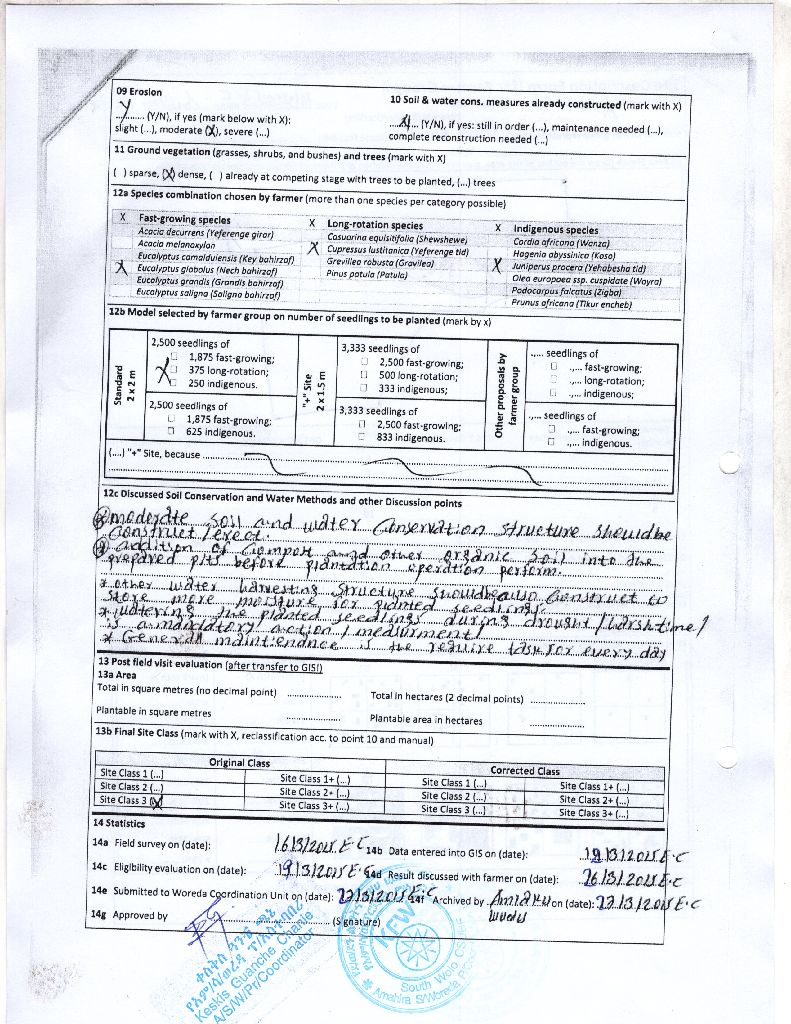 09 Erosion
Y (Y/N), if yes (mark below with X):
slight (...), moderate (X), severe (...)
10 Soil & water cons. measures already constructed (mark with X)
(Y/N), if yes: still in order (...), maintenance needed (...),
complete reconstruction needed (...)
11 Ground vegetation (grasses, shrubs, and bushes) and trees (mark with X)
( ) sparse, (X) dense, ( ) already at competing stage with trees to be planted, (...) trees
12a Species combination chosen by farmer (more than one species per category possible)
X Fast-growing species
Acacia decurrens (Yeferenge girar)
Acacia melanoxylon
Eucalyptus camalduiensis (Key bahirzaf)
X Eucalyptus globolus (Nech bahirzaf)
Eucalyptus grandis (Grandis bahirzaf)
Eucalyptus saligna (Saligna bahirzaf)
X Long-rotation species
Casuarina equisitifolia (Shewshewe)
X Cupressus lustitanica (Yeferenge tid)
Grevillea robusta (Gravilea)
Pinus patula (Patula)
X Indigenous species
Cordia africana (Wanza)
Hagenia abyssinica (Koso)
X Juniperus procera (Yehabesha tid)
Olea europaea ssp. cuspidate (Wayra)
Podocarpus falcatus (Zigba)
Prunus africana (Tikur encheb)
12b Model selected by farmer group on number of seedlings to be planted (mark by x)
Standard
2 x 2 m
2,500 seedlings of
1,875 fast-growing;
X 375 long-rotation;
250 indigenous.
2,500 seedlings of
1,875 fast-growing;
625 indigenous.
"+" Site
2 x 1.5 m
3,333 seedlings of
2,500 fast-growing;
500 long-rotation;
333 indigenous;
3,333 seedlings of
2,500 fast-growing;
833 indigenous.
Other proposals by
farmer group
..... seedlings of
..... fast-growing;
..... long-rotation;
..... indigenous;
..... seedlings of
..... fast-growing;
..... indigenous.
(....) "+" Site, because
12c Discussed Soil Conservation and Water Methods and other Discussion points
moderate soil and water Conservation structure shouldbe
Construct / erect.
addition of Compost and other organic soil into the
prepared pits before plantation operation perform.
* other water harvesting structure shouldbealso Construct to
store more moisture for planted seedlings.
* watering the planted seedlings during drought / harsh time /
is a mandatory action / measurment /
* General maintienance is the require task for every day
13 Post field visit evaluation (after transfer to GIS!)
13a Area
Total in square metres (no decimal point) ................ Total in hectares (2 decimal points) ................
Plantable in square metres ................ Plantable area in hectares ................
13b Final Site Class (mark with X, reclassification acc. to point 10 and manual)
Original Class Corrected Class
Site Class 1 (...) Site Class 1+ (...) Site Class 1 (...) Site Class 1+ (...)
Site Class 2 (...) Site Class 2+ (...) Site Class 2 (...) Site Class 2+ (...)
Site Class 3 (X) Site Class 3+ (...) Site Class 3 (...) Site Class 3+ (...)
14 Statistics
14a Field survey on (date): 16/3/2015 E.C 14b Data entered into GIS on (date): 19/3/2015 E.C
14c Eligibility evaluation on (date): 19/3/2015 E.C 14d Result discussed with farmer on (date): 26/3/2015 E.C
14e Submitted to Woreda Coordination Unit on (date): 27/3/2015 E.C 14f Archived by on (date): 27/3/2015 E.C
14g Approved by (Signature)
Keskis Guanche Chanie
A/S/W/Pr/Coordinator
KFW
South Wolo
Amahira S/Woreda